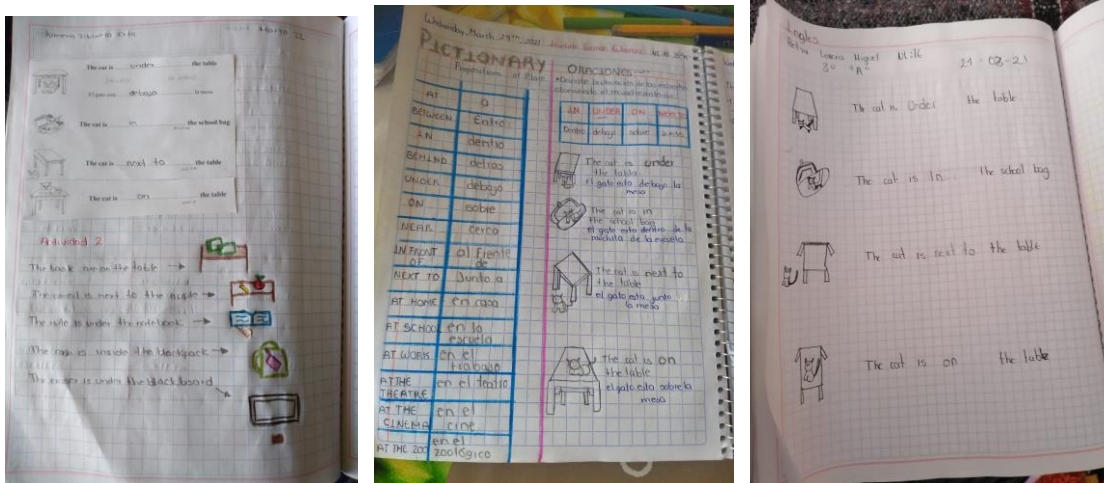 The cat is under the table
debajo
The cat is in the school bag
The cat is next to the table
The cat is on the table
Actividad 2
The book are on the table
is next to the
The rule is under the notebook
The is inside the backpack
The eraser is under the blackboard
Wednesday, March 24th, 2021
PICTIONARY
Prepositions of Place
AT a
BETWEEN Entre
IN dentro
BEHIND detras
UNDER debajo
ON sobre
NEAR cerca
IN FRONT OF al frente de
NEXT TO Junto a
AT HOME en casa
AT SCHOOL en la escuela
AT WORK en el trabajo
AT THE THEATRE en el teatro
AT THE CINEMA en el cine
AT THE ZOO en el zoológico
ORACIONES
IN UNDER ON NEXT TO
Dentro debajo sobre junto
The cat is under
the table
el gato esta debajo la
mesa
The cat is in
the school bag
el gato esta dentro de la
mochila de la escuela
The cat is next to
the table
el gato esta junto
la mesa
The cat is on
the table
el gato esta sobre la
mesa
Ingles
21-03-21
3° "A"
The cat is Under the table
The cat is In the school bag
The cat is next to the table
The cat is on the table